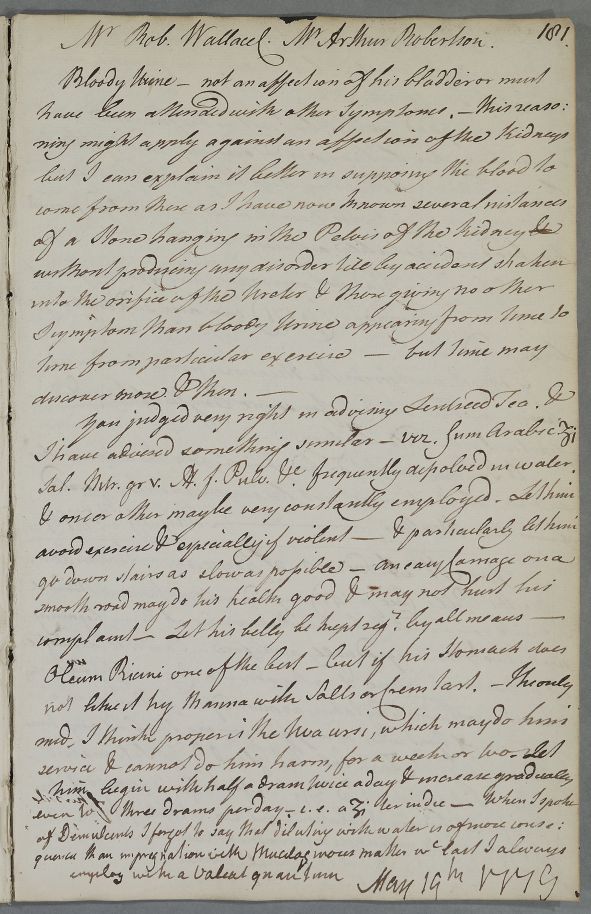 Mr Rob. Wallace. Mr Arthur Robertson. 181.
Bloody Urine – not an affection of his bladder or must
have been attended with other symptoms. – this reaso:
ning might apply against an affection of the Kidneys
but I can explain it better in supposing the blood to
come from these as I have now known several instances
of a Stone hanging in the Pelvis of the Kidney &
without producing any disorder till by accident shaken
into the orifice of the Ureter & then giving no other
Symptom than bloody Urine appearing from time to
time from particular exercise – but time may
discover more & then. –
You judged very right in advising Linseed Tea. &
I have advised something similar – viz. Gum Arabic ʒi
Sal. Nitr. gr v. M. f. Pulv. &c frequently dissolved in water.
& one or other may be very constantly employed. Let him
avoid exercise & especially if violent – & particularly let him
go down stairs as slow as possible – an easy Carriage on a
smooth road may do his health good & may not hurt his
complaint – Let his belly be kept regr. by all means –
Oleum Ricini one of the best – but if his Stomach does
not like it try Manna with Salts or Crem tart. – The only
med. I think proper is the Uva ursi, which may do him
service & cannot do him harm, for a week or two. Let
him begin with half a dram twice a day & increase gradually
even to three drams per day – i.e. a ʒi ter in die – When I spoke
of Demulcents I forgot to say that diluting with water is of more conse:
quence than impregnation with Mucilaginous matter wc. last I always
employ with a Valeat quantum
May 19th 1779